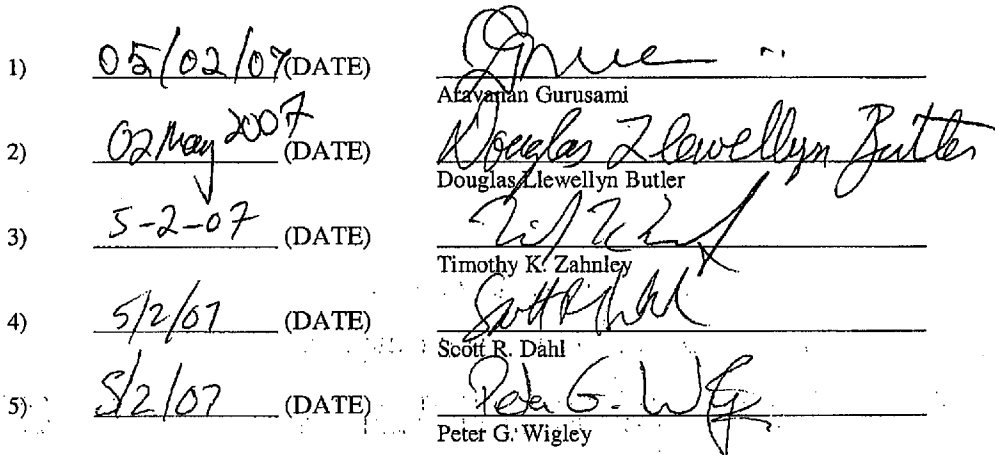 1) 05/02/07 (DATE)
Aravanan Gurusami
2) 02 May 2007 (DATE) Douglas Llewellyn Butler
Douglas Llewellyn Butler
3) 5-2-07 (DATE)
Timothy K. Zahnley
4) 5/2/07 (DATE) Scott R Dahl
Scott R. Dahl
5) 5/2/07 (DATE) Peter G. Wigley
Peter G. Wigley